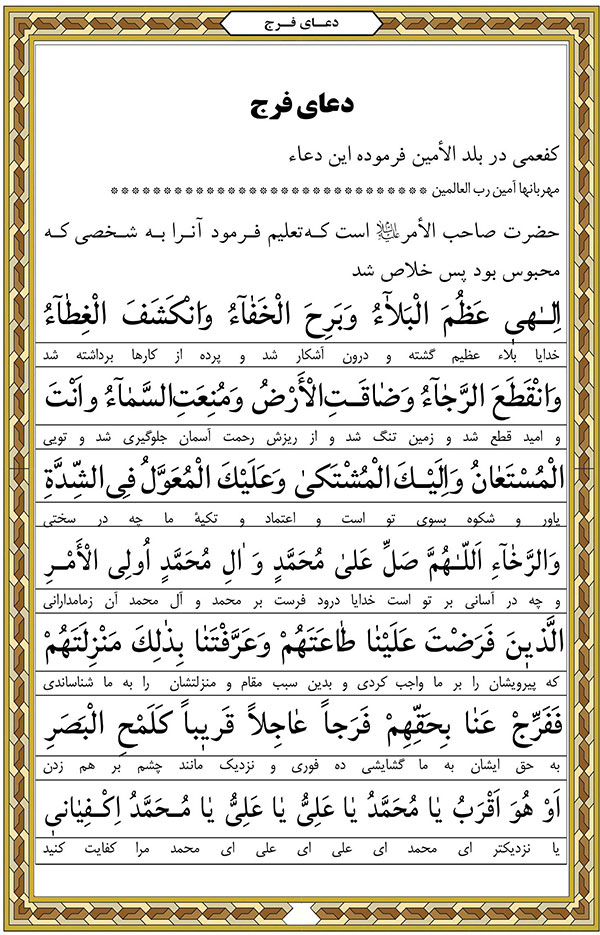 دعـای فـرج
دعای فرج
کفعمی در بلد الأمین فرموده این دعاء
مهربانها آمین رب العالمین ****************************
حضرت صاحب الأمر علیه‌السلام است که تعلیم فرمود آنرا به شخصی که
محبوس بود پس خلاص شد
اِلـٰهی عَظُمَ الْبَلآٰءُ وَبَرِحَ الْخَفٰآءُ وَانْکَشَفَ الْغِطٰآءُ
خدایا بلاء عظیم گشته و درون آشکار شد و پرده از کارها برداشته شد
وَانْقَطَعَ الرَّجٰآءُ وَضٰاقَـتِ الْأَرْضُ وَمُنِعَتِ السَّمٰآءُ وانْتَ
و امید قطع شد و زمین تنگ شد و از ریزش رحمت آسمان جلوگیری شد و تویی
الْمُسْتَعٰانُ وَاِلَیْـكَ الْمُشْتَکیٰ وَعَلَیْكَ الْمُعَوَّلُ فِی الشِّدَّةِ
یاور و شکوه بسوی تو است و اعتماد و تکیۀ ما چه در سختی
وَالرَّخٰآءِ اَللّـٰهُمَّ صَلِّ عَلیٰ مُحَمَّدٍ وَ اٰلِ مُحَمَّدٍ اُولِی الْأَمْـرِ
و چه در آسانی بر تو است خدایا درود فرست بر محمد و آل محمد آن زمامدارانی
الَّذینَ فَرَضْتَ عَلَیْنٰا طٰاعَتَهُمْ وَعَرَّفْتَنٰا بِذٰلِكَ مَنْزِلَتَهُمْ
که پیرویشان را بر ما واجب کردی و بدین سبب مقام و منزلتشان را به ما شناساندی
فَفَرِّجْ عَنٰا بِحَقِّهِمْ فَرَجاً عٰاجِلاً قَریباً کَلَمْحِ الْبَصَرِ
به حق ایشان به ما گشایشی ده فوری و نزدیک مانند چشم بر هم زدن
اَوْ هُوَ اَقْرَبُ یٰا مُحَمَّدُ یٰا عَلِیُّ یٰا عَلِیُّ یٰا مُـحَمَّدُ اِکْـفِیٰانی
یا نزدیکتر ای محمد ای علی ای علی ای محمد مرا کفایت کنید